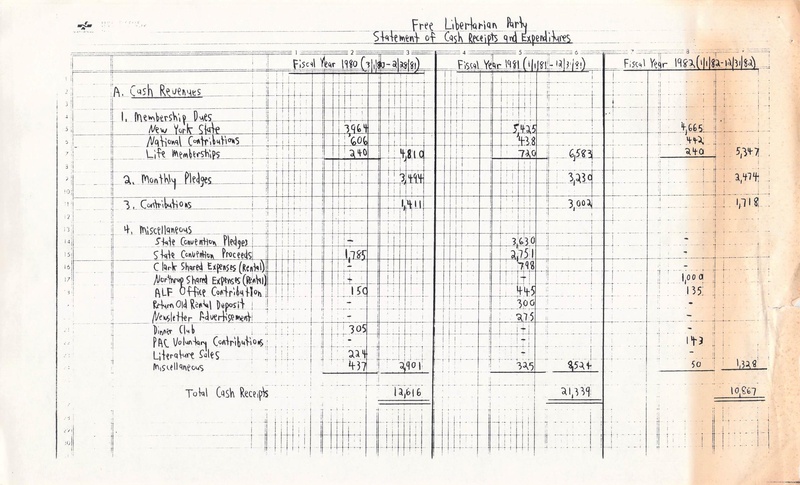 Free Libertarian Party
Statement of Cash Receipts and Expenditures
1 2 3 4 5 6 7 8
Fiscal Year 1980 (3/1/80-2/28/81) Fiscal Year 1981 (1/1/81-12/31/81) Fiscal Year 1982 (1/1/82-12/31/82)
A. Cash Revenues
1. Membership Dues
New York State 3,964 5,425 4,665
National Contributions 606 438 442
Life Memberships 240 4,810 720 6,583 240 5,347
2. Monthly Pledges 3,494 3,230 2,474
3. Contributions 1,411 3,002 1,718
4. Miscellaneous
State Convention Pledges - 3,630 -
State Convention Proceeds 1,785 2,751 -
Clark Shared Expenses (Rental) - 798 -
Northrup Shared Expenses (Rental) - - 1,000
ALF Office Contribution 150 445 135
Return Old Rental Deposit - 300 -
Newsletter Advertisement - 275 -
Dinner Club 305 - -
PAC Voluntary Contributions - - 143
Literature Sales 224 - -
Miscellaneous 437 2,901 325 8,524 50 1,328
Total Cash Receipts 12,616 21,339 10,867